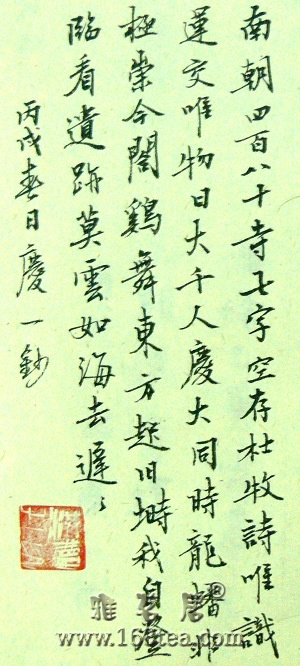 南朝四百八十寺七字空存杜牧詩唯識
蓮交唯物日大千人慶大同時龍蟠非
極崇今閣鷄舞東方起旧塒我自登
臨看遺跡莫雲如海去遲〻
丙戌春日慶一鈔
www.168tea.com